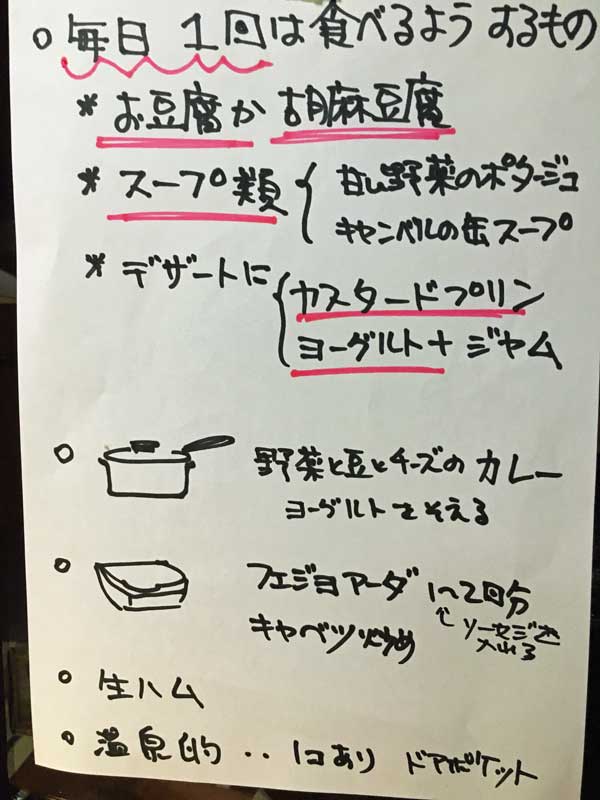 ○ 毎日 1回は食べるようするもの
* お豆腐か 胡麻豆腐
* スープ類 { 甘い野菜のポタージュ
キャンベルの缶スープ
* デザートに { カスタードプリン
ヨーグルト+ジャム
○ 野菜と豆とチーズの カレー
ヨーグルトをそえる
○ フェジョアーダ 1〜2回分
キャベツ炒め ↑ソーセージを
入れる
○ 生ハム
○ 温泉的 ‥ 1コあり ドアポケット